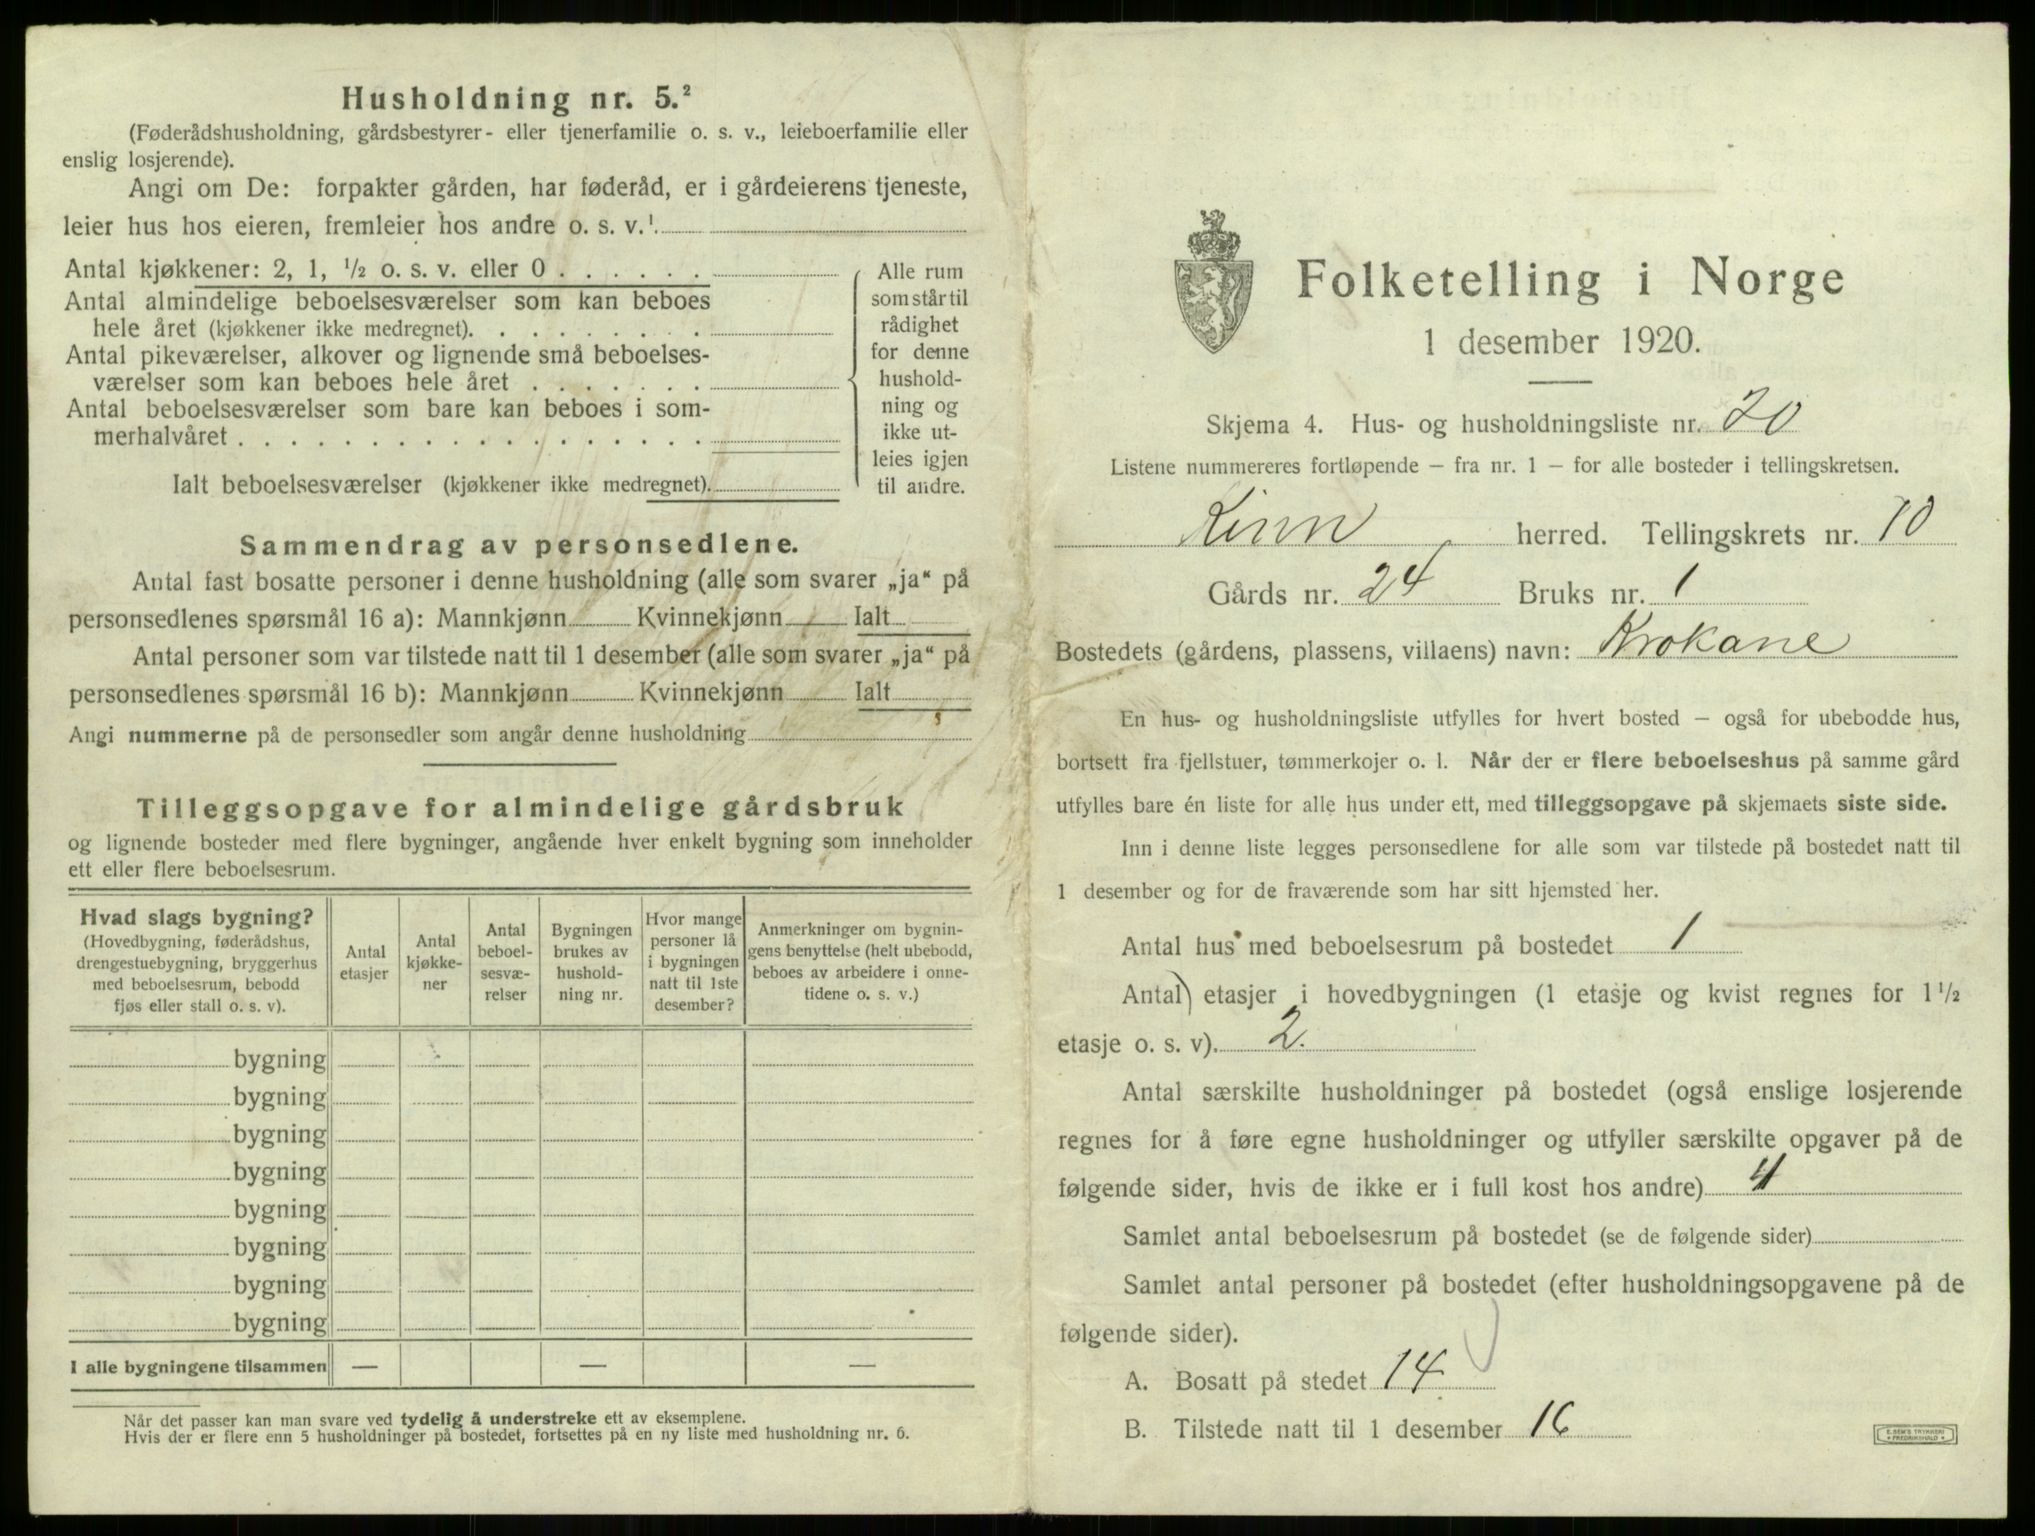 Husholdning nr. 5.²
(Føderådshusholdning, gårdsbestyrer- eller tjenerfamilie o. s. v., leieboerfamilie eller
enslig losjerende).
Angi om De: forpakter gården, har føderåd, er i gårdeierens tjeneste,
leier hus hos eieren, fremleier hos andre o. s. v.¹
Antal kjøkkener: 2, 1, ½ o. s. v. eller 0 . . . . . .
Antal almindelige beboelsesværelser som kan beboes
hele året (kjøkkener ikke medregnet). . . . . . . . .
Antal pikeværelser, alkover og lignende små beboelses-
værelser som kan beboes hele året . . . . . . .
Antal beboelsesværelser som bare kan beboes i som-
merhalvåret . . . . . . . . . . . . . . . . . .
Ialt beboelsesværelser (kjøkkener ikke medregnet).
Alle rum
som står til
rådighet
for denne
hushold-
ning og
ikke ut-
leies igjen
til andre.
Sammendrag av personsedlene.
Antal fast bosatte personer i denne husholdning (alle som svarer „ja“ på
personsedlenes spørsmål 16 a): Mannkjønn Kvinnekjønn Ialt
Antal personer som var tilstede natt til 1 desember (alle som svarer „ja“ på
personsedlenes spørsmål 16 b): Mannkjønn Kvinnekjønn Ialt
Angi nummerne på de personsedler som angår denne husholdning
Tilleggsopgave for almindelige gårdsbruk
og lignende bosteder med flere bygninger, angående hver enkelt bygning som inneholder
ett eller flere beboelsesrum.
Hvad slags bygning?
(Hovedbygning, føderådshus,
drengestuebygning, bryggerhus
med beboelsesrum, bebodd
fjøs eller stall o. s. v).
Antal
etasjer
Antal
kjøkke-
ner
Antal
beboel-
sesvæ-
relser
Bygningen
brukes av
hushold-
ning nr.
Hvor mange
personer lå
i bygningen
natt til 1ste
desember?
Anmerkninger om bygnin-
gens benyttelse (helt ubebodd,
beboes av arbeidere i onne-
tidene o. s. v.)
bygning
bygning
bygning
bygning
bygning
bygning
bygning
bygning
I alle bygningene tilsammen — — —
Når det passer kan man svare ved tydelig å understreke ett av eksemplene.
Hvis der er flere enn 5 husholdninger på bostedet, fortsettes på en ny liste med husholdning nr. 6.
Folketelling i Norge
1 desember 1920.
Skjema 4. Hus- og husholdningsliste nr. 20
Listene nummereres fortløpende — fra nr. 1 — for alle bosteder i tellingskretsen.
Kinn herred. Tellingskrets nr. 10
Gårds nr. 24 Bruks nr. 1
Bostedets (gårdens, plassens, villaens) navn: Krokane
En hus- og husholdningsliste utfylles for hvert bosted — også for ubebodde hus,
bortsett fra fjellstuer, tømmerkojer o. l. Når der er flere beboelseshus på samme gård
utfylles bare én liste for alle hus under ett, med tilleggsopgave på skjemaets siste side.
Inn i denne liste legges personsedlene for alle som var tilstede på bostedet natt til
1 desember og for de fraværende som har sitt hjemsted her.
Antal hus med beboelsesrum på bostedet 1
Antal etasjer i hovedbygningen (1 etasje og kvist regnes for 1½
etasje o. s. v). 2.
Antal særskilte husholdninger på bostedet (også enslige losjerende
regnes for å føre egne husholdninger og utfyller særskilte opgaver på de
følgende sider, hvis de ikke er i full kost hos andre) 4
Samlet antal beboelsesrum på bostedet (se de følgende sider)
Samlet antal personer på bostedet (efter husholdningsopgavene på de
følgende sider).
A. Bosatt på stedet 14
B. Tilstede natt til 1 desember 16
E. SEM'S TRYKKERI
FREDRIKSHALD